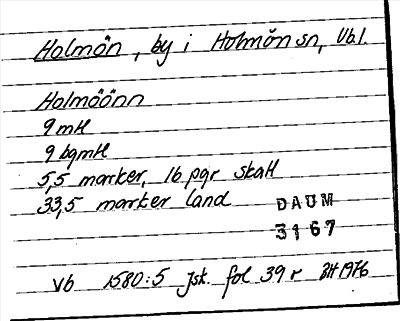 Holmön, by i Holmön sn, Vb.l.
Holmöönn
9 mtl
9 bqmtl
5,5 marker, 16 pgr skatt
33,5 marker land
DAUM
3167
Vb 1580:5 Jsk. fol 39 r BH 1976